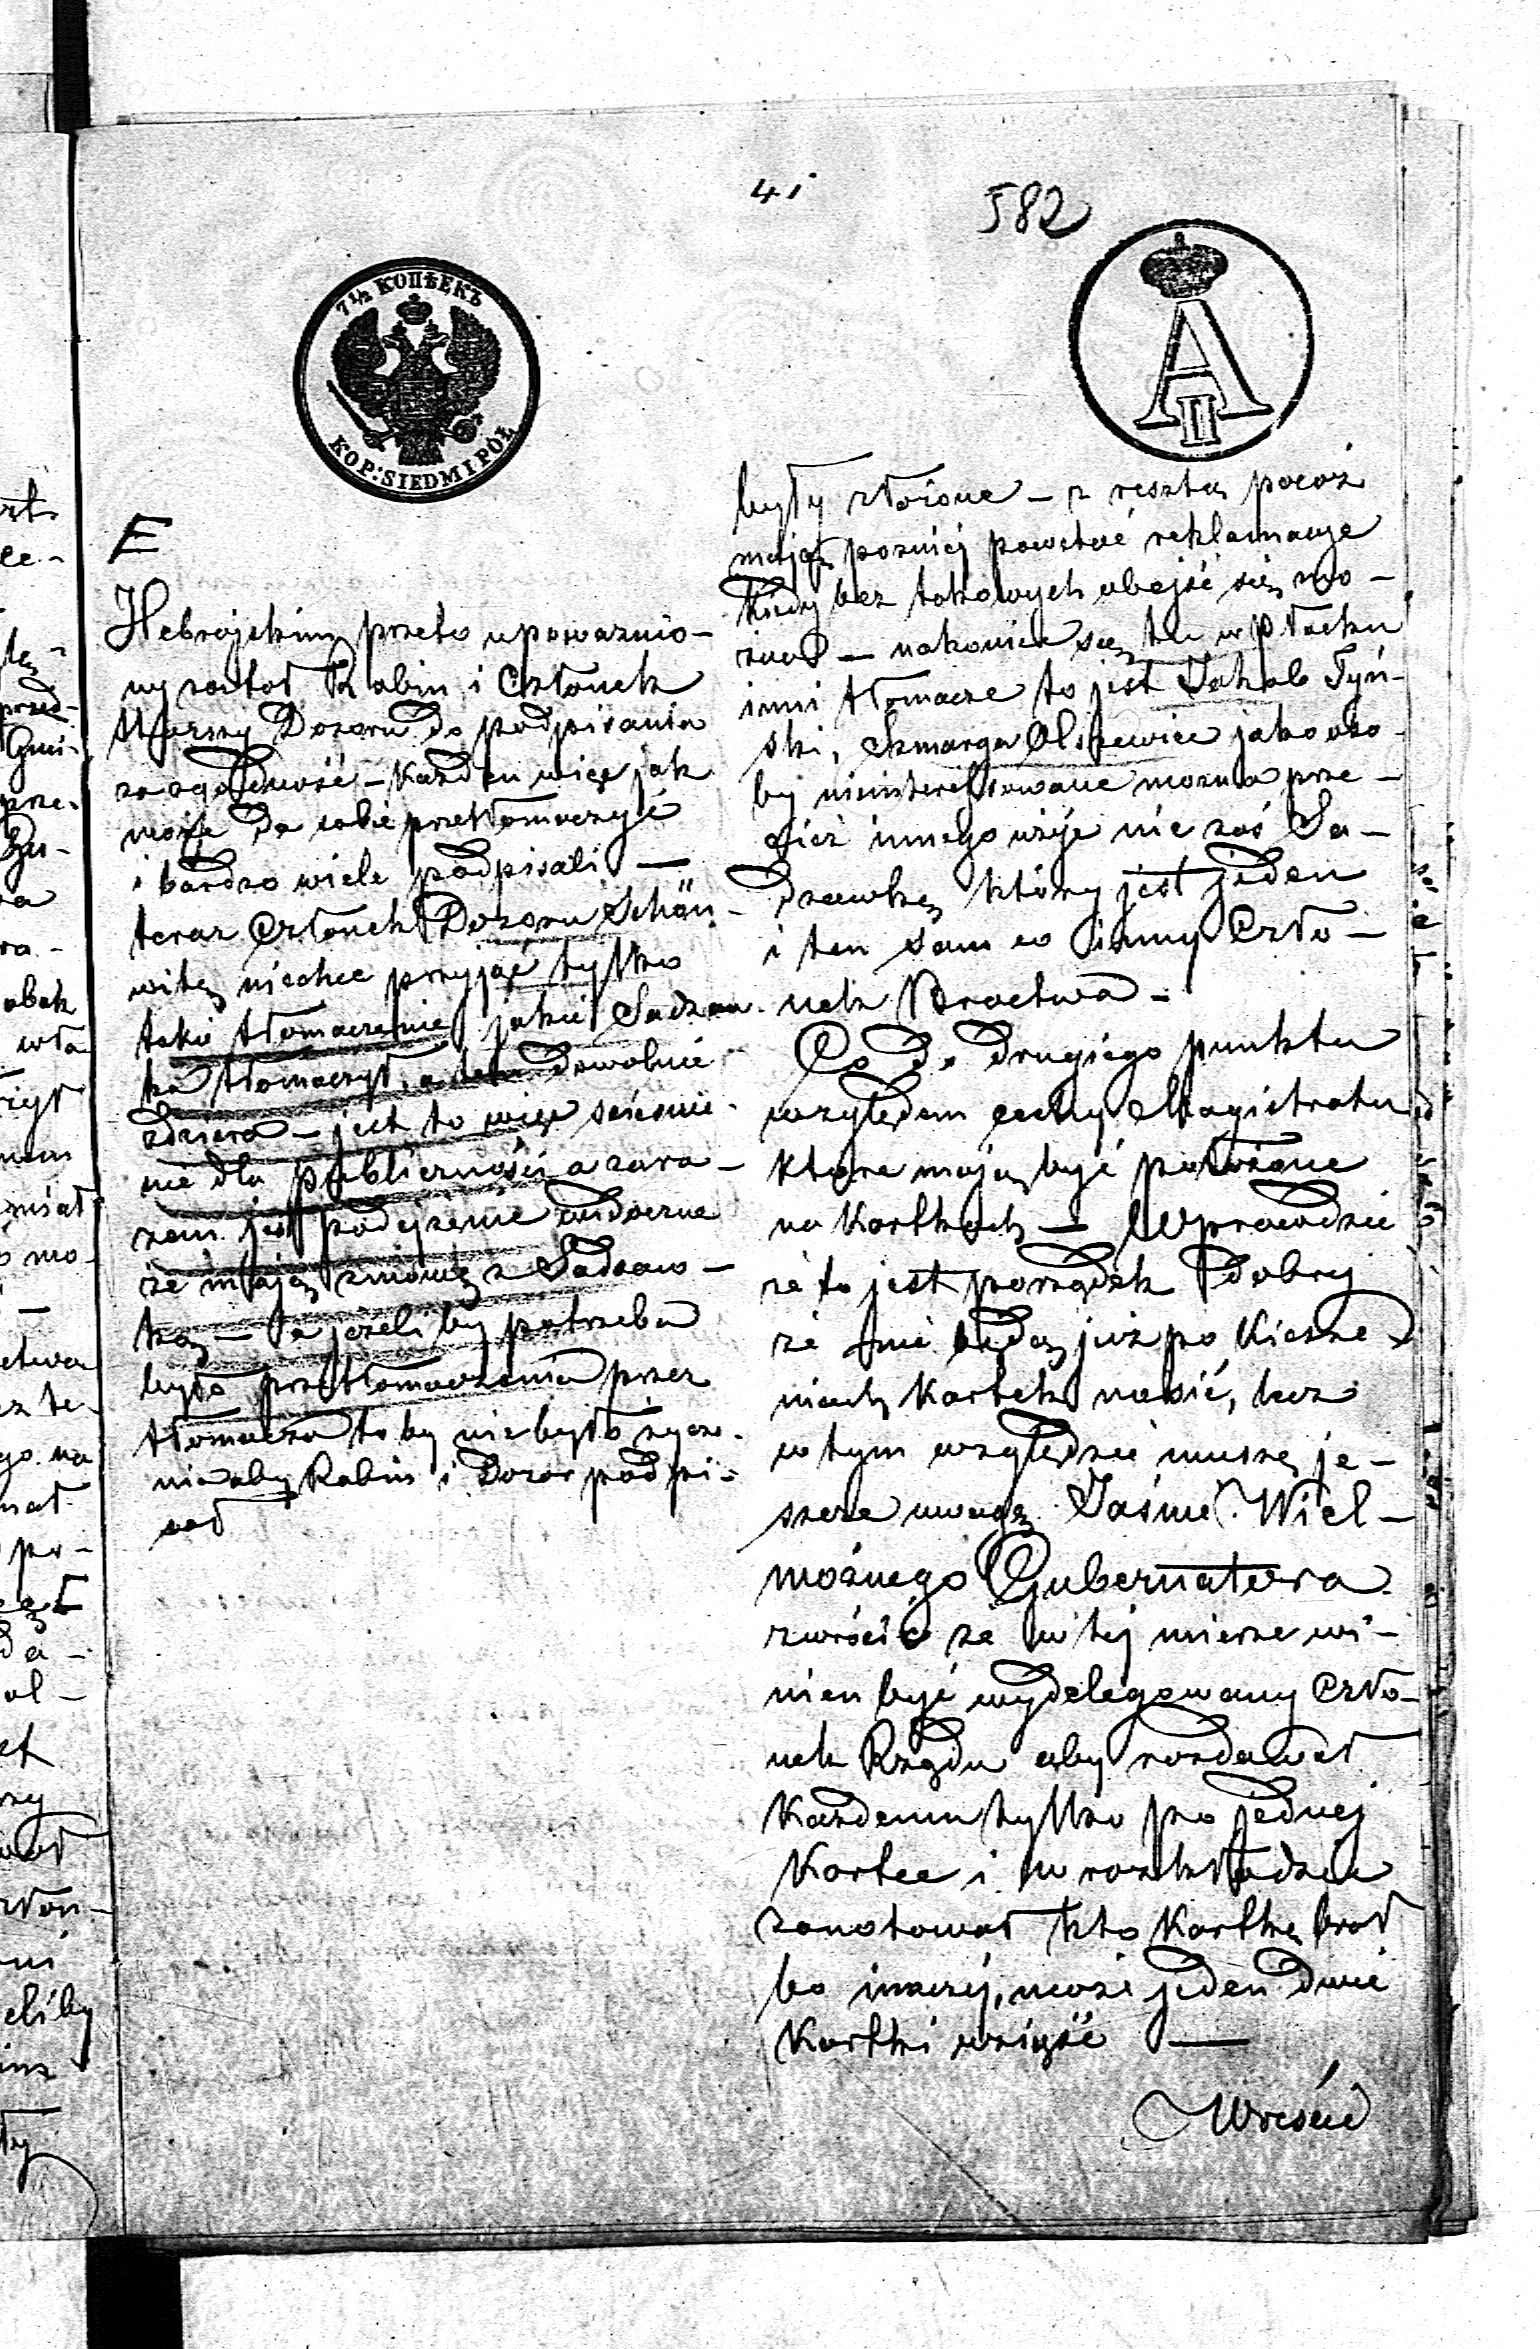 41
582
7 1/2 КОПѢЕКЪ
KOP: SIEDM I PÓŁ
A II
E
Hebrajskim przeto upoważnio-
ny został Rabin i Członek
Dozoru do podpisania
za zgodność – Każden więc jak
może da sobie przetłomaczyć
i bardzo wiele podpisali —
teraz Członek Dozoru Schön-
witz niechce przyjąć tylko
takie tłomaczenie jakie Sadzaw-
ka tłomaczył, a dowolnie
zdziera – jest to więc ścieśnie-
nie dla publiczności a zara-
zem jest podejzenie widoczne
że mają zmowę z Sadzaw-
ką – a jeżeli by potrzeba
była przetłomaczenia przez
tłomacza to by nie było życze-
nie aby Rabin i Dozor podpi-
sał
były złożone – z resztą pocóż
mają pozniej powstać reklamacye
Kiedy bez takowych obejść się mo-
żna – nakoniec są tu w Płocku
inni tłomacze to jest Jakob Tyń-
ski, Szmarga Olszewice jako oso-
by nieinteresowane można prze-
cież innego użyć nie zaś Sa-
dzawkę który jest jeden
i ten sam co inny Czło-
nek Bractwa –
Co do drugiego punktu
względem cechy Magistratu
które mają być położone
na Kartkach — Wprawdzie
że to jest porządek dobry
że nie będą już po Kiesze-
niach Kartek nosić, lecz
w tym względzie muszę je-
szcze uwagę Jaśnie Wiel-
możnego Gubernatora
zwrócić że w tej mierze wi-
nien być wydelegowany Czło-
nek Rządu aby rozdawał
Każdemu tylko po jednej
Kartce i w rozkładzie
zanotował kto Kartkę brał
bo inaczej, może jeden dwie
Kartki wziąść —
Wreście